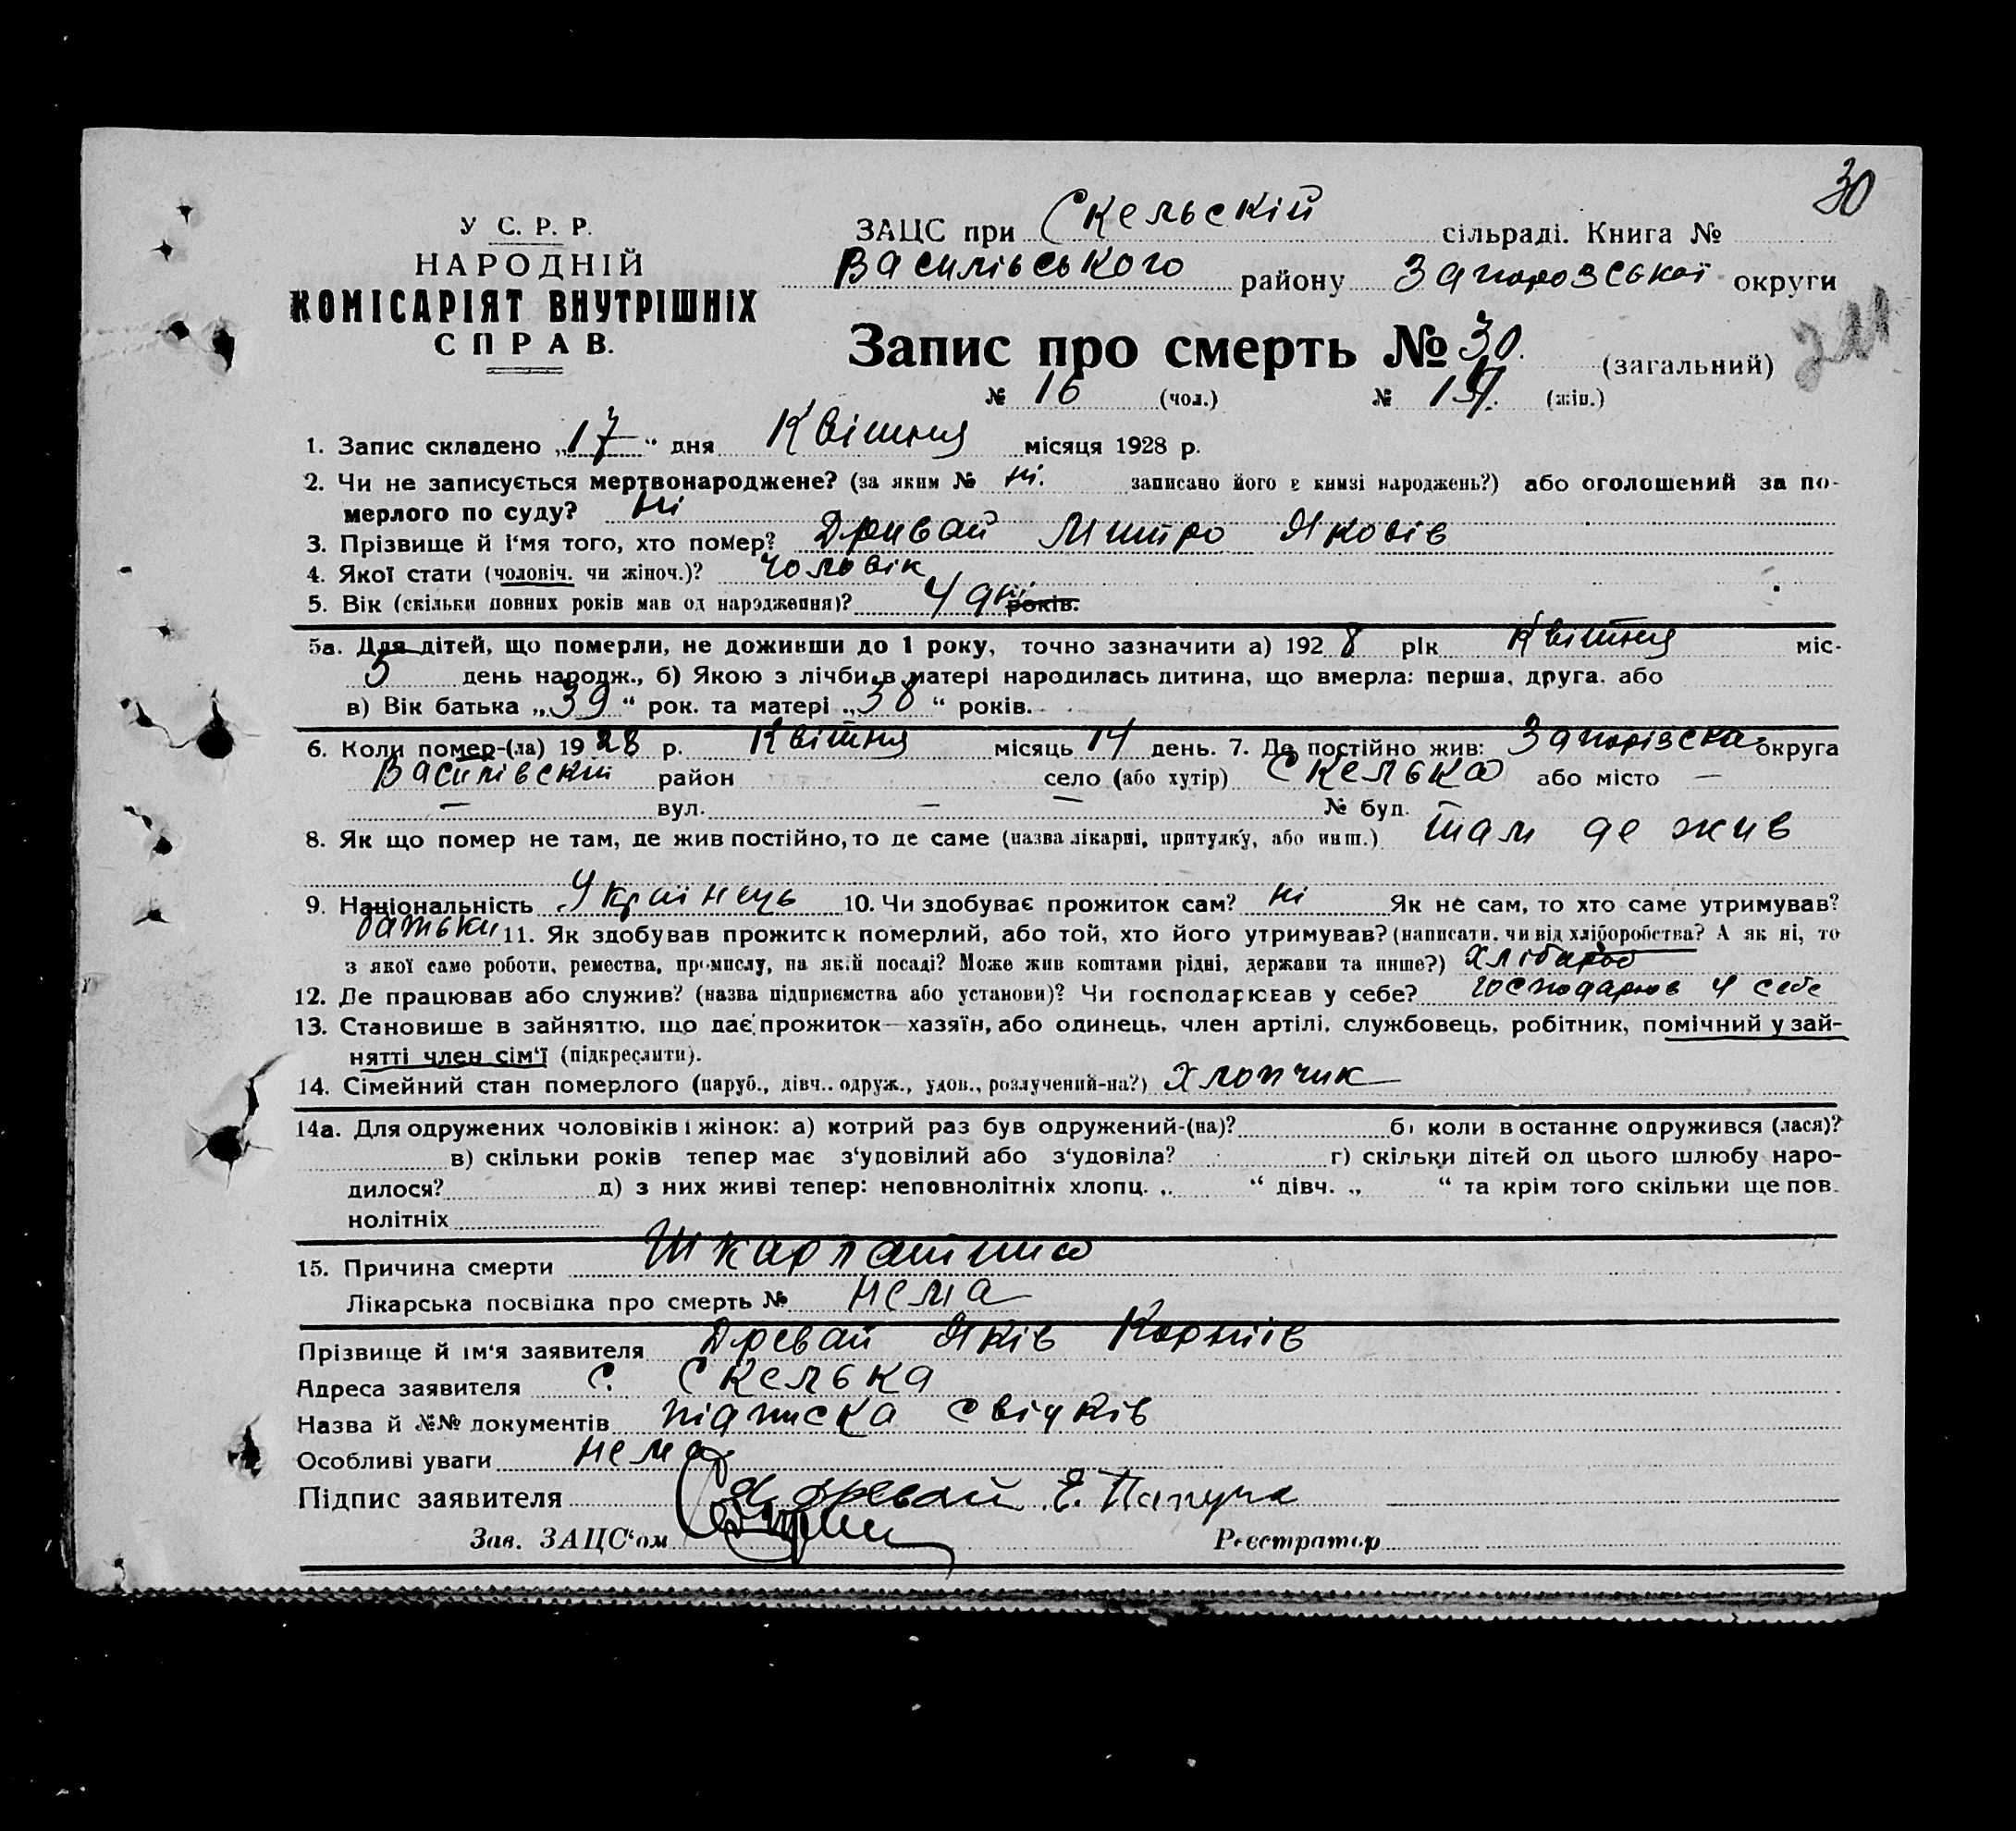 30
У С. Р. Р.
НАРОДНІЙ
КОМІСАРІЯТ ВНУТРІШНІХ
СПРАВ.
ЗАЦС при Скельскій сільраді. Книга №
Василівського району Запорозської округи
Запис про смерть № 30. (загальний)
№ 16 (чол.) № (жін.)
1. Запис складено „17“ дня Квітня місяця 1928 р.
2. Чи не записується мертвонароджене? (за яким № ні. записано його в книзі народжень?) або оголошений за по-
мерлого по суду? ні
3. Прізвище й і'мя того, хто помер? Дривай Митро Яковів
4. Якої стати (чоловіч. чи жіноч.)? чоловік
5. Вік (скільки повних років мав од народження)? 9 дні років.
5а. Для дітей, що померли, не доживши до 1 року, точно зазначити а) 1928 рік Квітня міс-
5 день народж., б) Якою з лічби в матері народилась дитина, що вмерла: перша, друга. або
в) Вік батька „39“ рок. та матері „38“ років.
6. Коли помер-(ла) 1928 р. Квітня місяць 14 день. 7. Де постійно жив: Запорізска округа
Василівскій район село (або хутір) Скелька або місто —
— вул. — № буд. —
8. Як що помер не там, де жив постійно, то де саме (назва лікарні, притулку, або инш.) там де жив
9. Національність Українець 10. Чи здобуває прожиток сам? ні Як не сам, то хто саме утримував?
батьки 11. Як здобував прожиток померлий, або той, хто його утримував? (написати. чи від хліборобства? А як ні, то
з якої саме роботи, ремества, промислу, на якій посаді? Може жив коштами рідні, держави та инше?) Хлібороб
12. Де працював або служив? (назва підприємства або установи)? Чи господарював у себе? господарював у себе
13. Становище в зайнятті, що дає прожиток—хазяїн, або одинець, член артілі, службовець, робітник, помічний у зай-
нятті член сім'ї (підкреслити).
14. Сімейний стан померлого (паруб., дівч.. одруж., удов., розлучений-на?) хлопчик
14а. Для одружених чоловіків і жінок: а) котрий раз був одружений-(на)? б) коли в останнє одружився (лася)?
в) скільки років тепер має з'удовілий або з'удовіла? г) скільки дітей од цього шлюбу наро-
дилося? д) з них живі тепер: неповнолітніх хлопц. „ “ дівч. „ “ та крім того скільки ще пов.
нолітніх
15. Причина смерти Шкарлатина
Лікарська посвідка про смерть № нема
Прізвище й ім'я заявителя Древай Яків Корніїв
Адреса заявителя с. Скелька
Назва й №№ документів підписка свідків
Особливі уваги нема
Підпис заявителя Я Древай Е. Папуча
Зав. ЗАЦС'ом Реєстратор